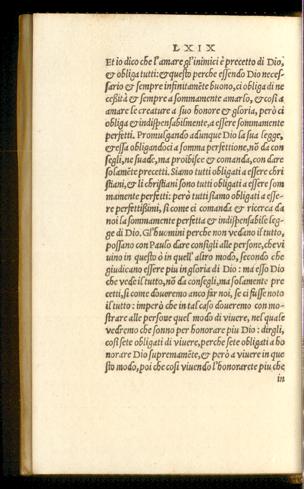 LXIX
Et io dico che l'amare gl'inimici è precetto di Dio,
& obliga tutti: & questo perche essendo Dio neces-
sario & sempre infinitamẽte buono, ci obliga di ne
ceßità & sempre a sommamente amarlo, & così a
amare le creature a suo honore & gloria, però ci
obliga & indispensabilmente, a essere sommamente
perfetti. Promulgando adunque Dio la sua legge,
& essa obligandoci a somma perfettione, nõ da con
segli, ne suade, ma proibisce & comanda, con dare
solamẽte precetti. Siamo tutti obligati a essere chri
stiani, & li christiani sono tutti obligati a essere som
mamente perfetti: però tutti siamo obligati a esse-
re perfettißimi, si come ci comanda & ricerca da
noi la sommamente perfetta & indispensabile leg-
ge di Dio. Gl'huomini perche non vedano il tutto,
possano con Paulo dare consigli alle persone, che vi
uino in questo ò in quell'altro modo, secondo che
giudicano essere piu in gloria di Dio: ma esso Dio
che vede il tutto, nõ da consegli, ma solamente pre
cetti, si come doueremo anco far noi, se ci fusse noto
il tutto: imperò che in tal caso doueremo con mo-
strare alle persone quel modo di viuere, nel quale
vedremo che sonno per honorare piu Dio: dirgli,
così sete obligati di viuere, perche sete obligati a ho
norare Dio supremamẽte, & però a viuere in que
sto modo, poi che così viuendo l'honorarete piu che
in